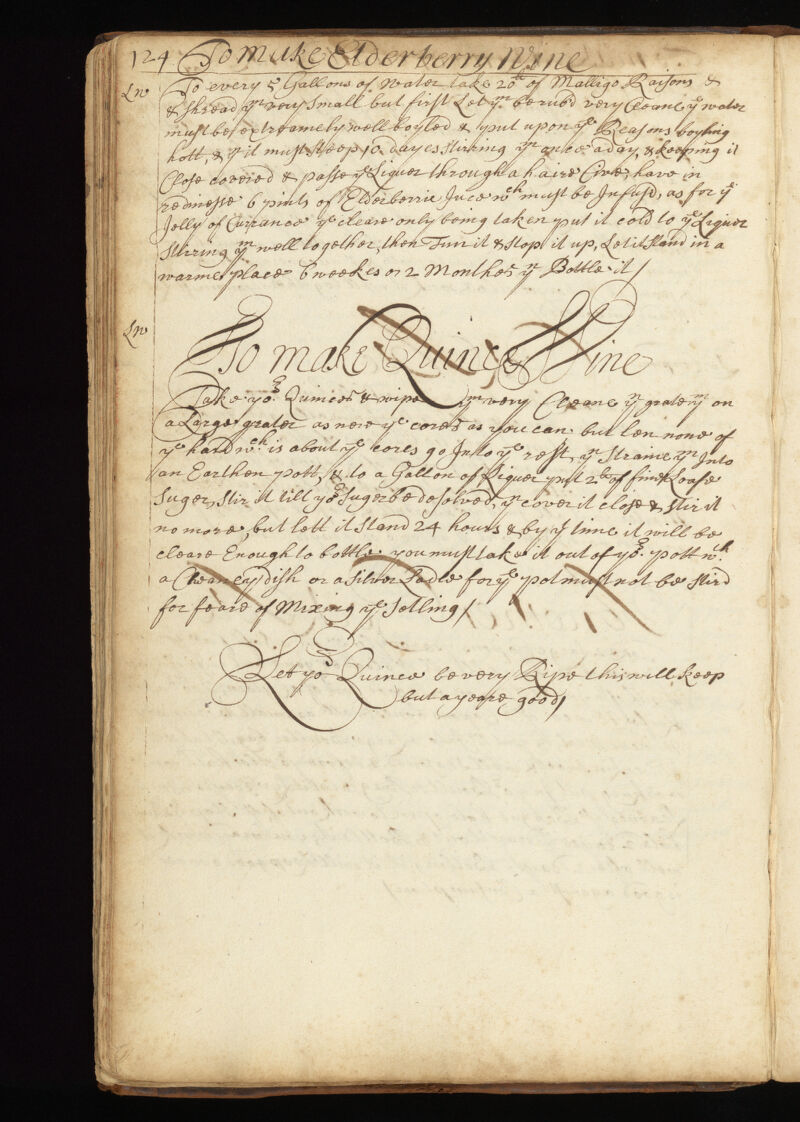 124 To Make Elderberry Wine
Lw To every 5 Gallons of water take 20tt of Malligo Raisons &
& shread ym very small but first Let ym be rub'd very Cleane ye water
must be extreamely well boyled & put upon ye Reasons boyling
hott, & yt it must steep 10 dayes stirring ym once a day, & keeping it
Close covered & passe ye Liquer through a haire Cive, have in
rednesse 6 pints of Elderberrie Juce wch must be Infused, as for ye
Jelly of Currance ye cleare only being taken put it cold to ye Liquer
Stiring ym well together, then Tun it & stop it up, Let it stand in a
warme place 6 weekes or 2 Monthes yn Bottle it /
Lw To make Quince Wine
Take yor Quinces & wipe ym very Cleane yn grate ym on
a Large grater as nere ye cores as you can but len none of
ye hard wch is about ye cores go Into ye rest, yn straine ym Into
an Earthen pott, & to a Gallon of Liquer put 2tt of fine Loafe
Suger, Stir it till yor Suger be desolved, yn cover it close & stir it
no more, but lett it stand 24 hours & by yt time it will be
cleare Enough to bottle you must take it out of yor pott wth
a Cheaney dish or a Silver Ladle for ye pot must not be stird
for feare of Mixing ye Setling /
Let yor Quince be very Ripe this will keep
but a yeare good /